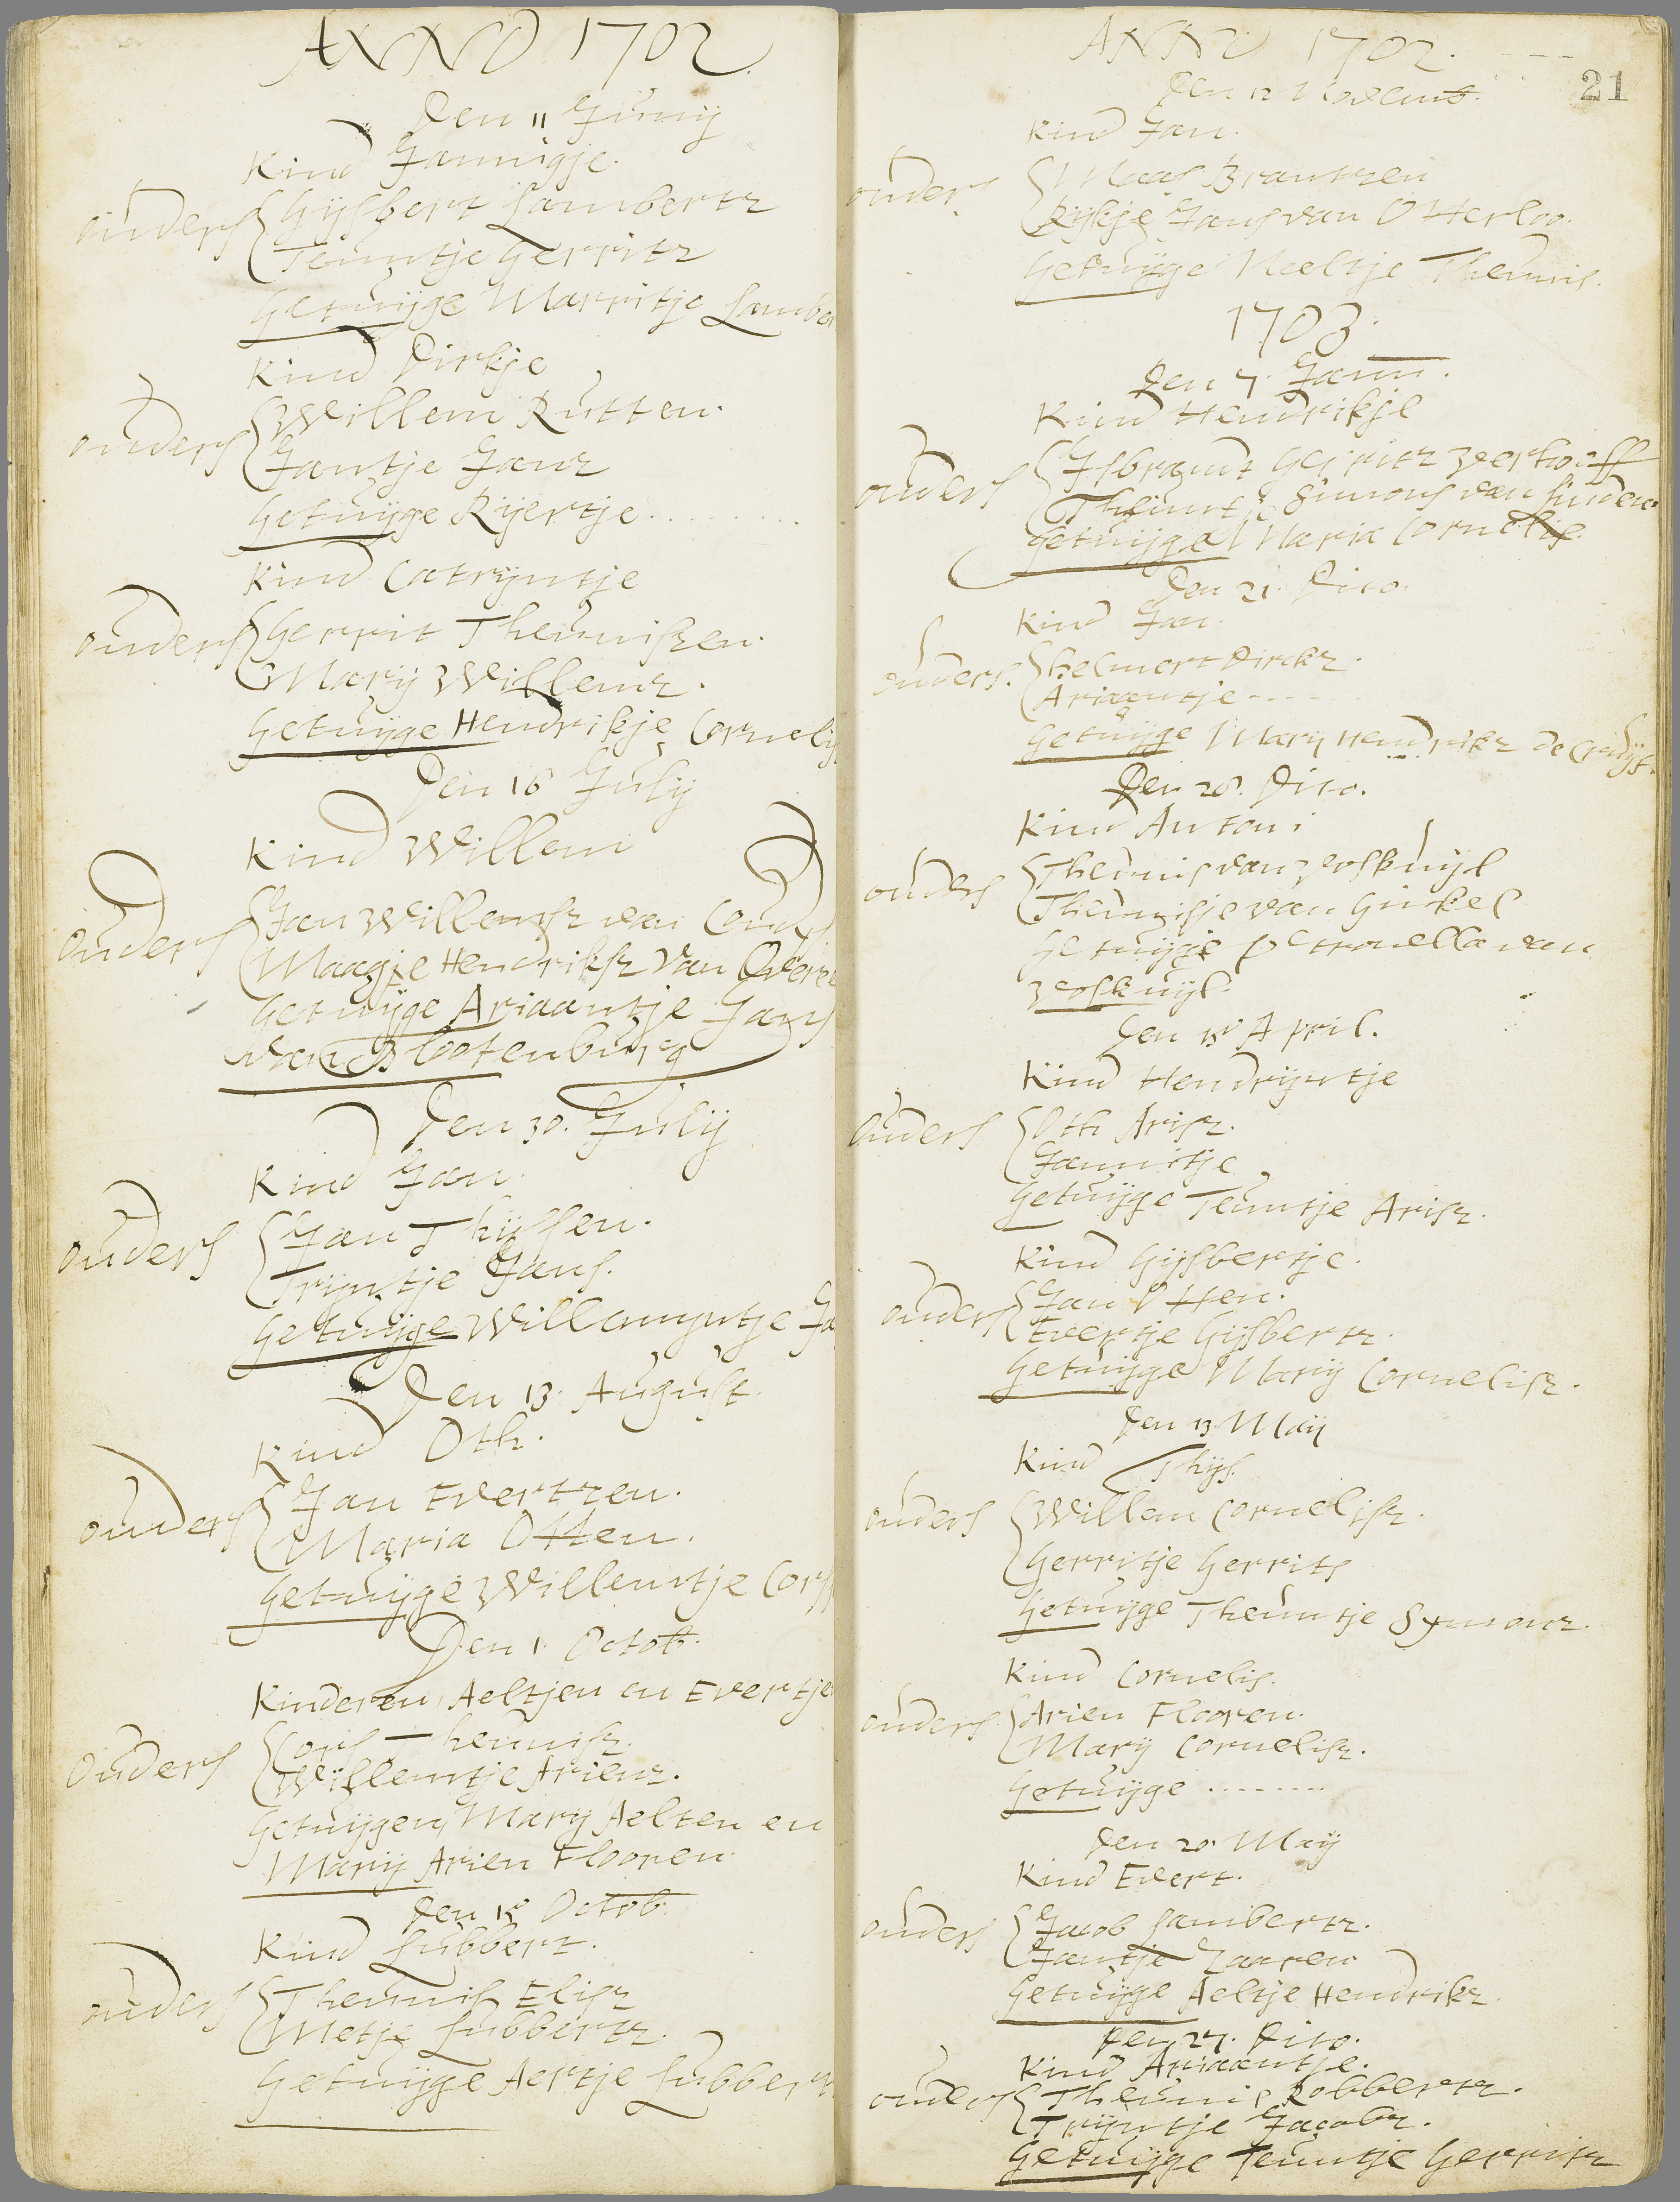 ANNO 1702
Den 11 Junij
Kind Jannigje.
ouders
Gijsbert Lambertz
Teuntje Gerritz
Getuijge Marritje Lamber
Kind Dirkje
ouders
Willem Rutten.
Jantje Janz
Getuijge Rijertje..........
Kind Catrijntje
ouders
Gerrit Theuniszen.
Marij Willemz.
Getuijge Hendrikje Cornelis
Den 16 July
Kind Willem
ouders
Jan Willemsz van
Maagje Hendriksz van
Getuijge Ariaantje Jans
van Slootenburg
Den 30. Julij
Kind Jan.
ouders
Jan Thijssen.
Trijntje Jans.
Getuijge Willemijntje Ja
Den 13. August.
Kind Oth.
ouders
Jan Evertzen.
Maria Otten.
Getuijge Willemtje Cors
Den 1. Octob.
Kinderen Aeltjen en Evertje
ouders
Cors Theunisz.
Willemtje Arienz.
Getuijgen Marij Aelten en
Marij Arien Flooren.
Den 15 Octob.
Kind Lubbert.
ouders
Theunis Elisz
Metje Lubbertz.
Getuijge Aertje Lubbertz
ANNO 1702.
21
Den 12 Novemb.
Kind Jan.
ouders
Maas Brantzen
Rijkje Jans van Otterloo.
Getuijge Neeltje Theunis.
1703.
Den 7. Jann.
Kind Hendrikje
ouders
Isbrandt Gerritz Verhoeff
Theuntje Simons van Linden
Getuijge Maria Cornelis.
Den 21. Dito.
Kind Jan.
ouders.
Helmert Dirckz.
Ariaantje----
Getuijge Marij Hendrikz de
Den 28. Dito.
Kind Antoni
ouders
Theunis van Voskuyl
Theunisje van Ginkel
Getuijge Petronella van
Voskuijl.
Den 15 April.
Kind Hendrijntje
ouders
Oth Arisz.
Jannitje
Getuijge Teuntje Arisz.
Kind Gijsbertje.
ouders
Jan Otten.
Evertje Gijsbertz.
Getuijge Marij Cornelisz.
Den 13. Maij
Kind Thijs.
ouders
Willem Cornelisz.
Gerritje Gerrits
Getuijge Theuntje Symonz.
Kind Cornelis.
ouders
Arien Flooren.
Marij Cornelisz.
Getuijge ........
Den 20 Maij
Kind Evert.
ouders
Jacob Lambertz.
Jantje Zaaren
Getuijge Aeltje Hendrikz.
Den 27. Dito.
Kind Ariaantje.
ouders
Theunis Robbertz.
Trijntje Jacobz.
Getuijge Teuntje Gerritz